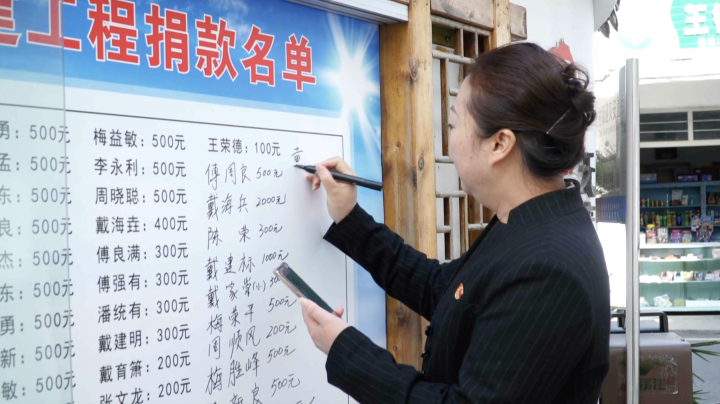 工程捐款名单
勇：500元
孟：500元
东：500元
良：500元
杰：500元
东：500元
勇：500元
新：500元
敏：500元
梅益敏：500元
李永利：500元
周晓聪：500元
戴海垚：400元
傅良满：300元
傅强有：300元
潘统有：300元
戴建明：300元
戴育箫：200元
张文龙：200元
王荣德：100元
傅周良 500元
戴海兵 2000元
陈荣 300元
戴建标 1000元
戴家常(小) 30
梅荣平 500元
周顺风 200元
梅胜峰 500元
良 500元
童